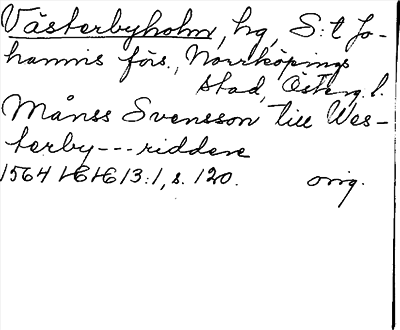 Västerbyholm, hg, S:t Jo-
hannis förs., Norrköpings
stad, Österg.l.
Månss Svensson till Wes-
terby---riddere
1564 HH 13:1, s. 120. orig.